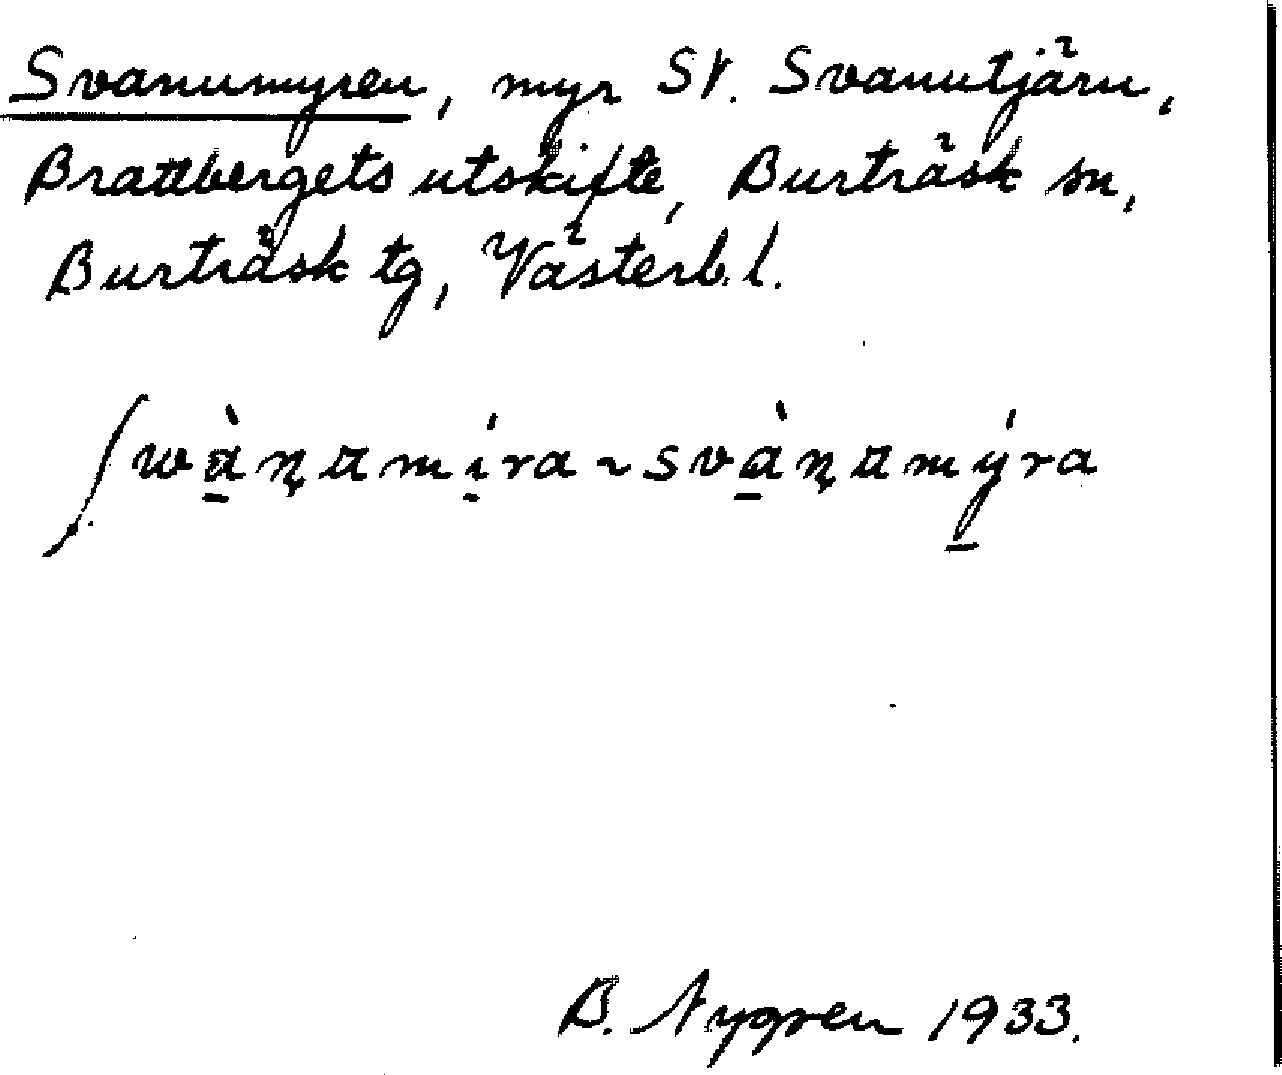 Svanumyren, myr SV. Svanutjärn,
Brattbergets utskifte, Burträsk sn,
Burträsk tg, Västerb. l.
ʃwà̱ṇamí̱ra ~ svà̱ṇamý̱ra
B. Nygren 1933.